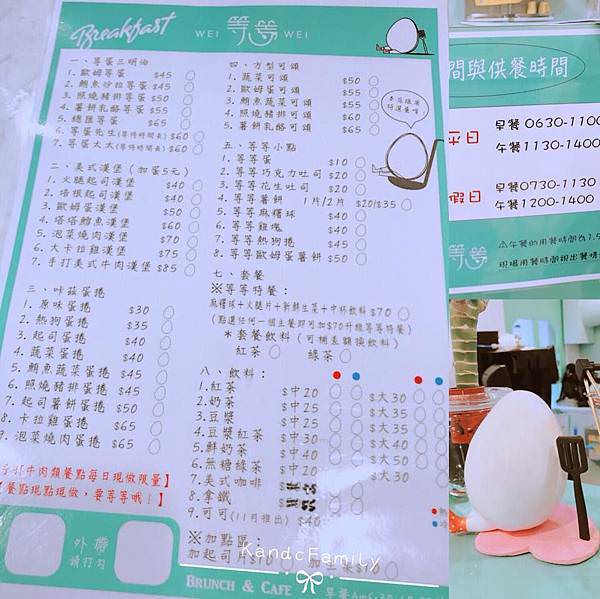 Breakfast
WEI 等等 WEI
一、等蛋三明治
1. 歐姆等蛋 $45
2. 鮪魚炒拉等蛋 $45
3. 照燒豬排等蛋 $50
4. 薯餅乳酪等蛋 $55
5. 總匯等蛋 $65
6. 等蛋先生(等待時間長) $60
7. 等蛋太太(等待時間長) $60
二、美式漢堡（加蛋5元）
1. 火腿起司漢堡 $40
2. 培根起司漢堡 $40
3. 歐姆蛋漢堡 $50
4. 塔塔鱈魚漢堡 $60
5. 泡菜燒肉漢堡 $70
6. 大卡拉雞漢堡 $75
7. 手打美式牛肉漢堡 $85
三、咔茲蛋捲
1. 原味蛋捲 $30
2. 熱狗蛋捲 $35
3. 起司蛋捲 $40
4. 蔬菜蛋捲 $40
5. 鮪魚蔬菜蛋捲 $55
6. 照燒豬排蛋捲 $45
7. 起司薯餅蛋捲 $50
8. 卡拉雞蛋捲 $65
9. 泡菜燒肉蛋捲 $65
手打牛肉類餐點每日現做限量】
【餐點現點現做，要等等哦！】
外帶
請打勾
四、方型可頌
1. 蔬菜可頌 $50
2. 歐姆蛋可頌 $55
3. 鮪魚蔬菜可頌 $55
4. 照燒豬排可頌 $60
5. 薯餅乳酪可頌 $65
五、等等小點
1. 等等蛋 $10
2. 等等巧克力吐司 $20
3. 等等花生吐司 $20
4. 等等薯餅 1片/2片 $20/$35
5. 等等麻糬球 $40
6. 等等雞塊 $40
7. 等等熱狗捲 $45
8. 等等歐姆蛋薯餅 $50
七、套餐
※等等特餐：
麻糬球+火腿片+新鮮生菜+中杯飲料 $70
(點選任何一個主餐即可加$70升級等等特餐)
＊套餐飲料（可補差額換飲料）
紅茶 綠茶
八、飲料：
1. 紅茶 $中20 $大30
2. 奶茶 $中25 $大35
3. 豆漿 $中25 $大35
4. 豆漿紅茶 $中30 $大40
5. 鮮奶茶 $中35 $大50
6. 無糖綠茶 $中20 $大30
7. 美式咖啡
8. 拿鐵
9. 可可(11月推出) $40
※加點區：
加起司片$10
BRUNCH & CAFE
KandcFamily
間與供餐時間
平日
早餐 0630-1100
午餐1130-1400
假日
早餐0730-1130
午餐1200-1400
等等
⚠午餐的用餐時間為1.5